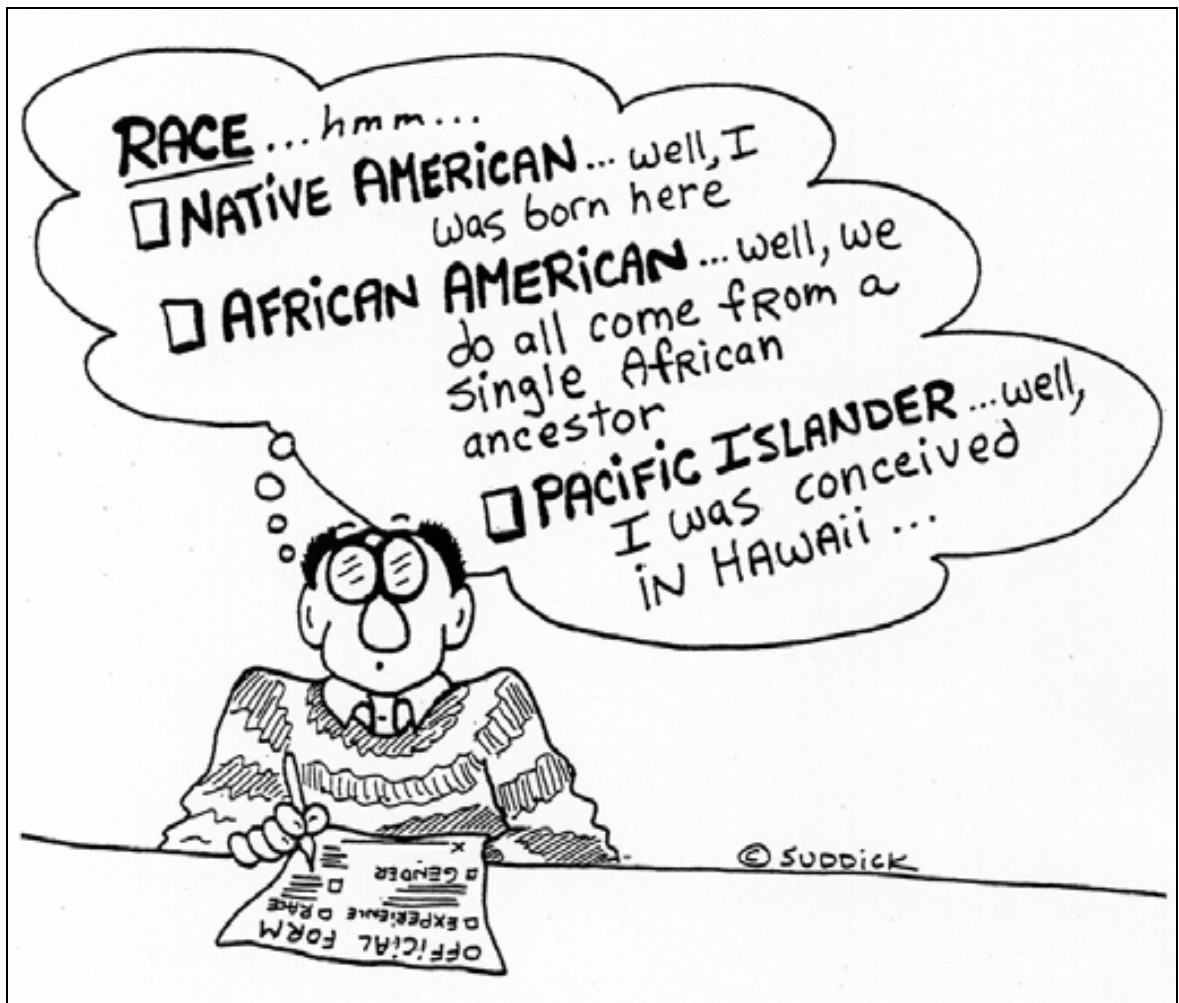 RACE ...hmm...
NATIVE AMERICAN... well, I
was born here
AFRICAN AMERICAN ...well, we
do all come from a
single African
ancestor
PACIFIC ISLANDER ...well,
I was conceived
in HAWAii ...
© SUDDICK
OFFICIAL FORM
EXPERIENCE RACE
GENDER
x